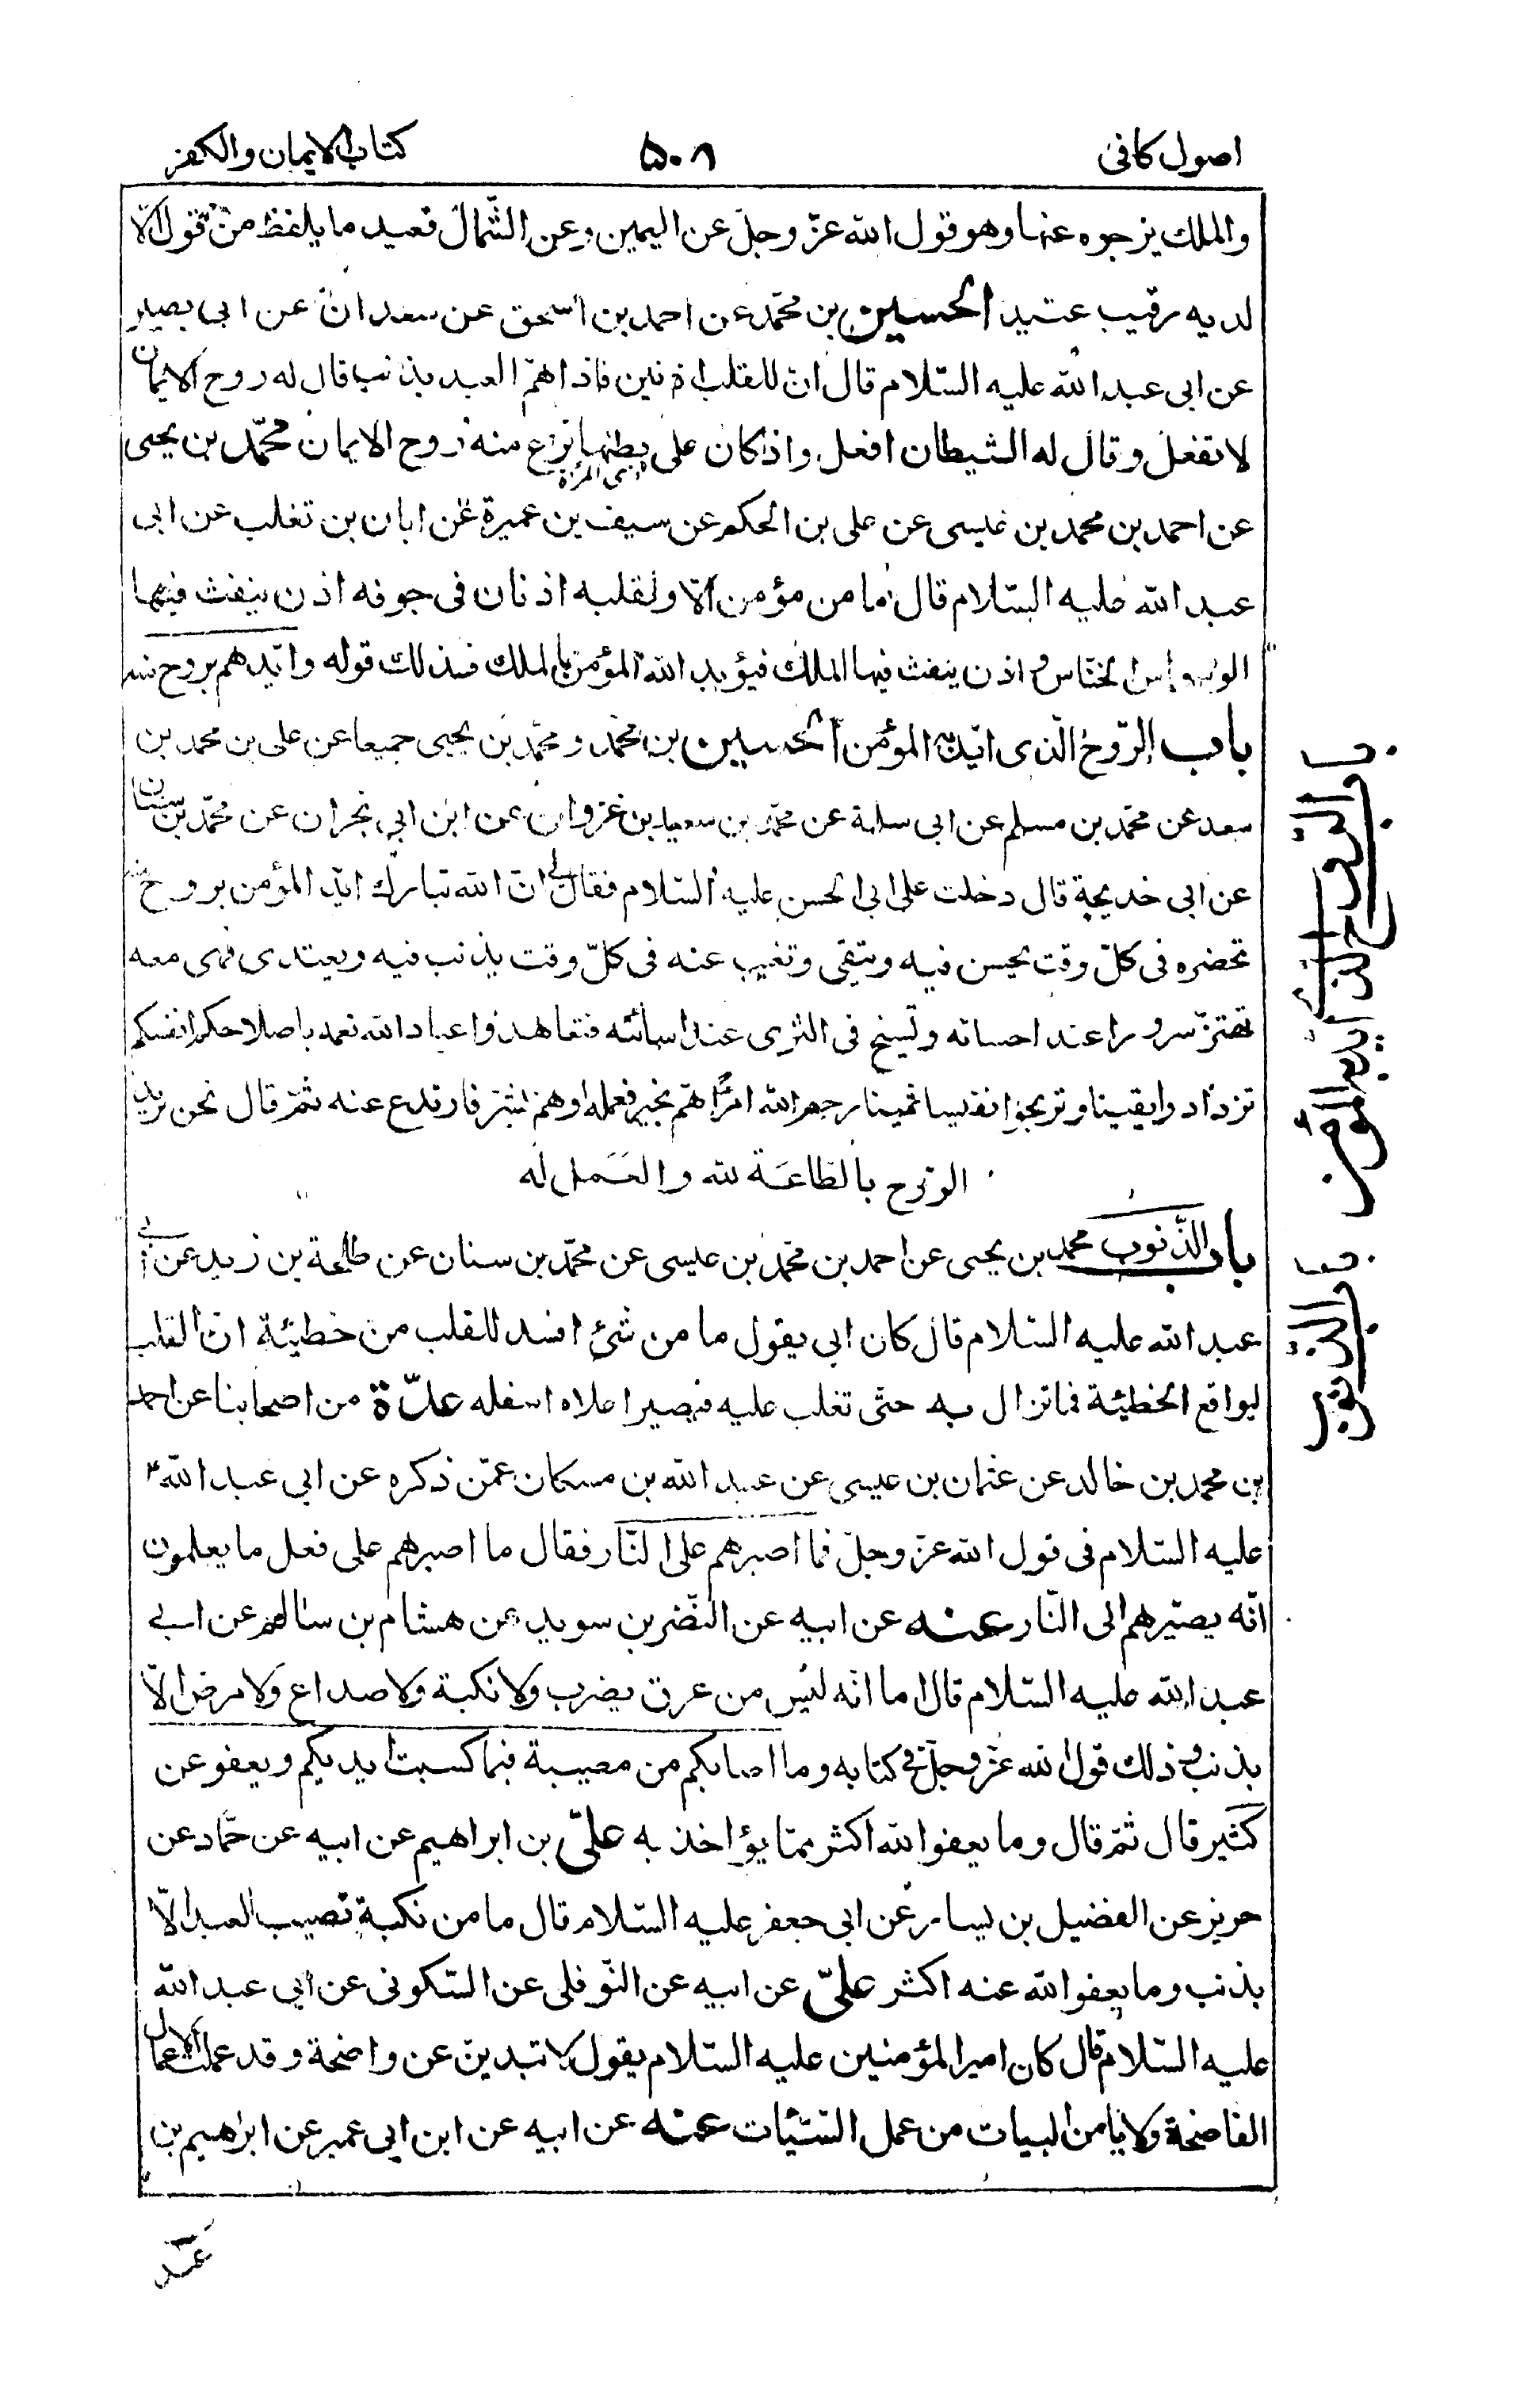 اصول كافى
۵۰۸
كتاب الايمان والكفر
والملك يزجره عنها وهو قول الله عزّ وجلّ عن اليمين وعن الشّمال قعيد ما يلفظ من قول الّا
لديه رقيب عتيد الحسين بن محمّد عن احمد بن اسحق عن سعدان عن ابى بصير
عن ابى عبد الله عليه السّلام قال انّ للقلب اذنين فاذا همّ العبد بذنب قال له روح الايمان
لا تفعل وقال له الشيطان افعل واذا كان على بطنها نزع منه روح الايمان محمّد بن يحيى
اى المرأة
عن احمد بن محمد بن عيسى عن على بن الحكم عن سيف بن عميرة عن ابان بن تغلب عن ابى
عبد الله عليه السّلام قال ما من مؤمن الّا ولقلبه اذنان فى جوفه اذن ينفث فيها
الوسواس الخنّاس واذن ينفث فيها الملك فيؤيد الله المؤمن بالملك فذلك قوله وايّدهم بروح منه
باب الرّوح الّذى ايّد به المؤمن الحسين بن محمد ومحمّد بن يحيى جميعا عن على بن محمد بن
سعد عن محمّد بن مسلم عن ابى سلمة عن محمّد بن سعيد بن غزوان عن ابن ابى نجران عن محمّد بن سنان
عن ابى خديجة قال دخلت على ابى الحسن عليه السّلام فقال لى انّ الله تبارك ايّد المؤمن بروح منه
تحضره فى كلّ وقت يحسن فيه ويتقى وتغيب عنه فى كلّ وقت يذنب فيه ويعتدى فهى معه
تهتزّ سرورا عند احسانه وتسيخ فى الثرى عند اسائته فتعاهدوا عباد الله نعمه باصلاحكم انفسكم
تزدادوا يقينا وتربحوا نفيسا ثمينا رحم الله امرأ همّ بخير فعمله او همّ بشرّ فارتدع عنه ثمّ قال نحن نؤيد
الروح بالطاعة لله والعمل له
باب الذّنوب محمد بن يحيى عن احمد بن محمّد بن عيسى عن محمّد بن سنان عن طلحة بن زيد عن ابى
عبد الله عليه السّلام قال كان ابى يقول ما من شئ افسد للقلب من خطيئة انّ القلب
ليواقع الخطيئة فما تزال به حتّى تغلب عليه فيصير اعلاه اسفله عدّة من اصحابنا عن احمد
بن محمد بن خالد عن عثمان بن عيسى عن عبد الله بن مسكان عمّن ذكره عن ابى عبد الله
عليه السّلام فى قول الله عزّ وجلّ فما اصبرهم على النّار فقال ما اصبرهم على فعل ما يعلمون
انّه يصيّرهم الى النّار عنه عن ابيه عن النّضر بن سويد عن هشام بن سالم عن ابى
عبد الله عليه السّلام قال اما انّه ليس من عرق يضرب ولا نكبة ولا صداع ولا مرض الّا
بذنب وذلك قول الله عزّ وجلّ فى كتابه وما اصابكم من مصيبة فبما كسبت ايديكم ويعفو عن
كثير قال ثمّ قال وما يعفوا لله اكثر ممّا يؤاخذ به علىّ بن ابراهيم عن ابيه عن حمّاد عن
حريز عن الفضيل بن يسار عن ابى جعفر عليه السّلام قال ما من نكبة تصيب العبد الّا
بذنب وما يعفوا الله عنه اكثر علىّ عن ابيه عن النّوفلى عن السّكونى عن ابى عبد الله
عليه السّلام قال كان امير المؤمنين عليه السّلام يقول لا تبدينّ عن واضحة وقد عملت الاعمال
الفاضحة ولا يامن البيات من عمل السّيّئات عنه عن ابيه عن ابن ابى عمير عن ابراهيم بن
باب الرّوح الّذى ايّد به المؤمن
باب الذّنوب